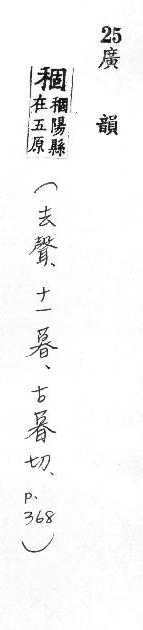 25
廣韻
稒稒陽縣
在五原
(去聲、十一暮、古暮切、p.368)